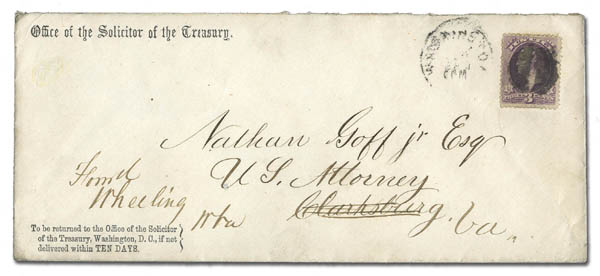 Office of the Solicitor of the Treasury.
3
Nathan Goff jr Esq
U. S. Attorney
Clarksburg. Va.
Wheeling
W Va
To be returned to the Office of the Solicitor
of the Treasury, Washington, D. C., if not
delivered within TEN DAYS.